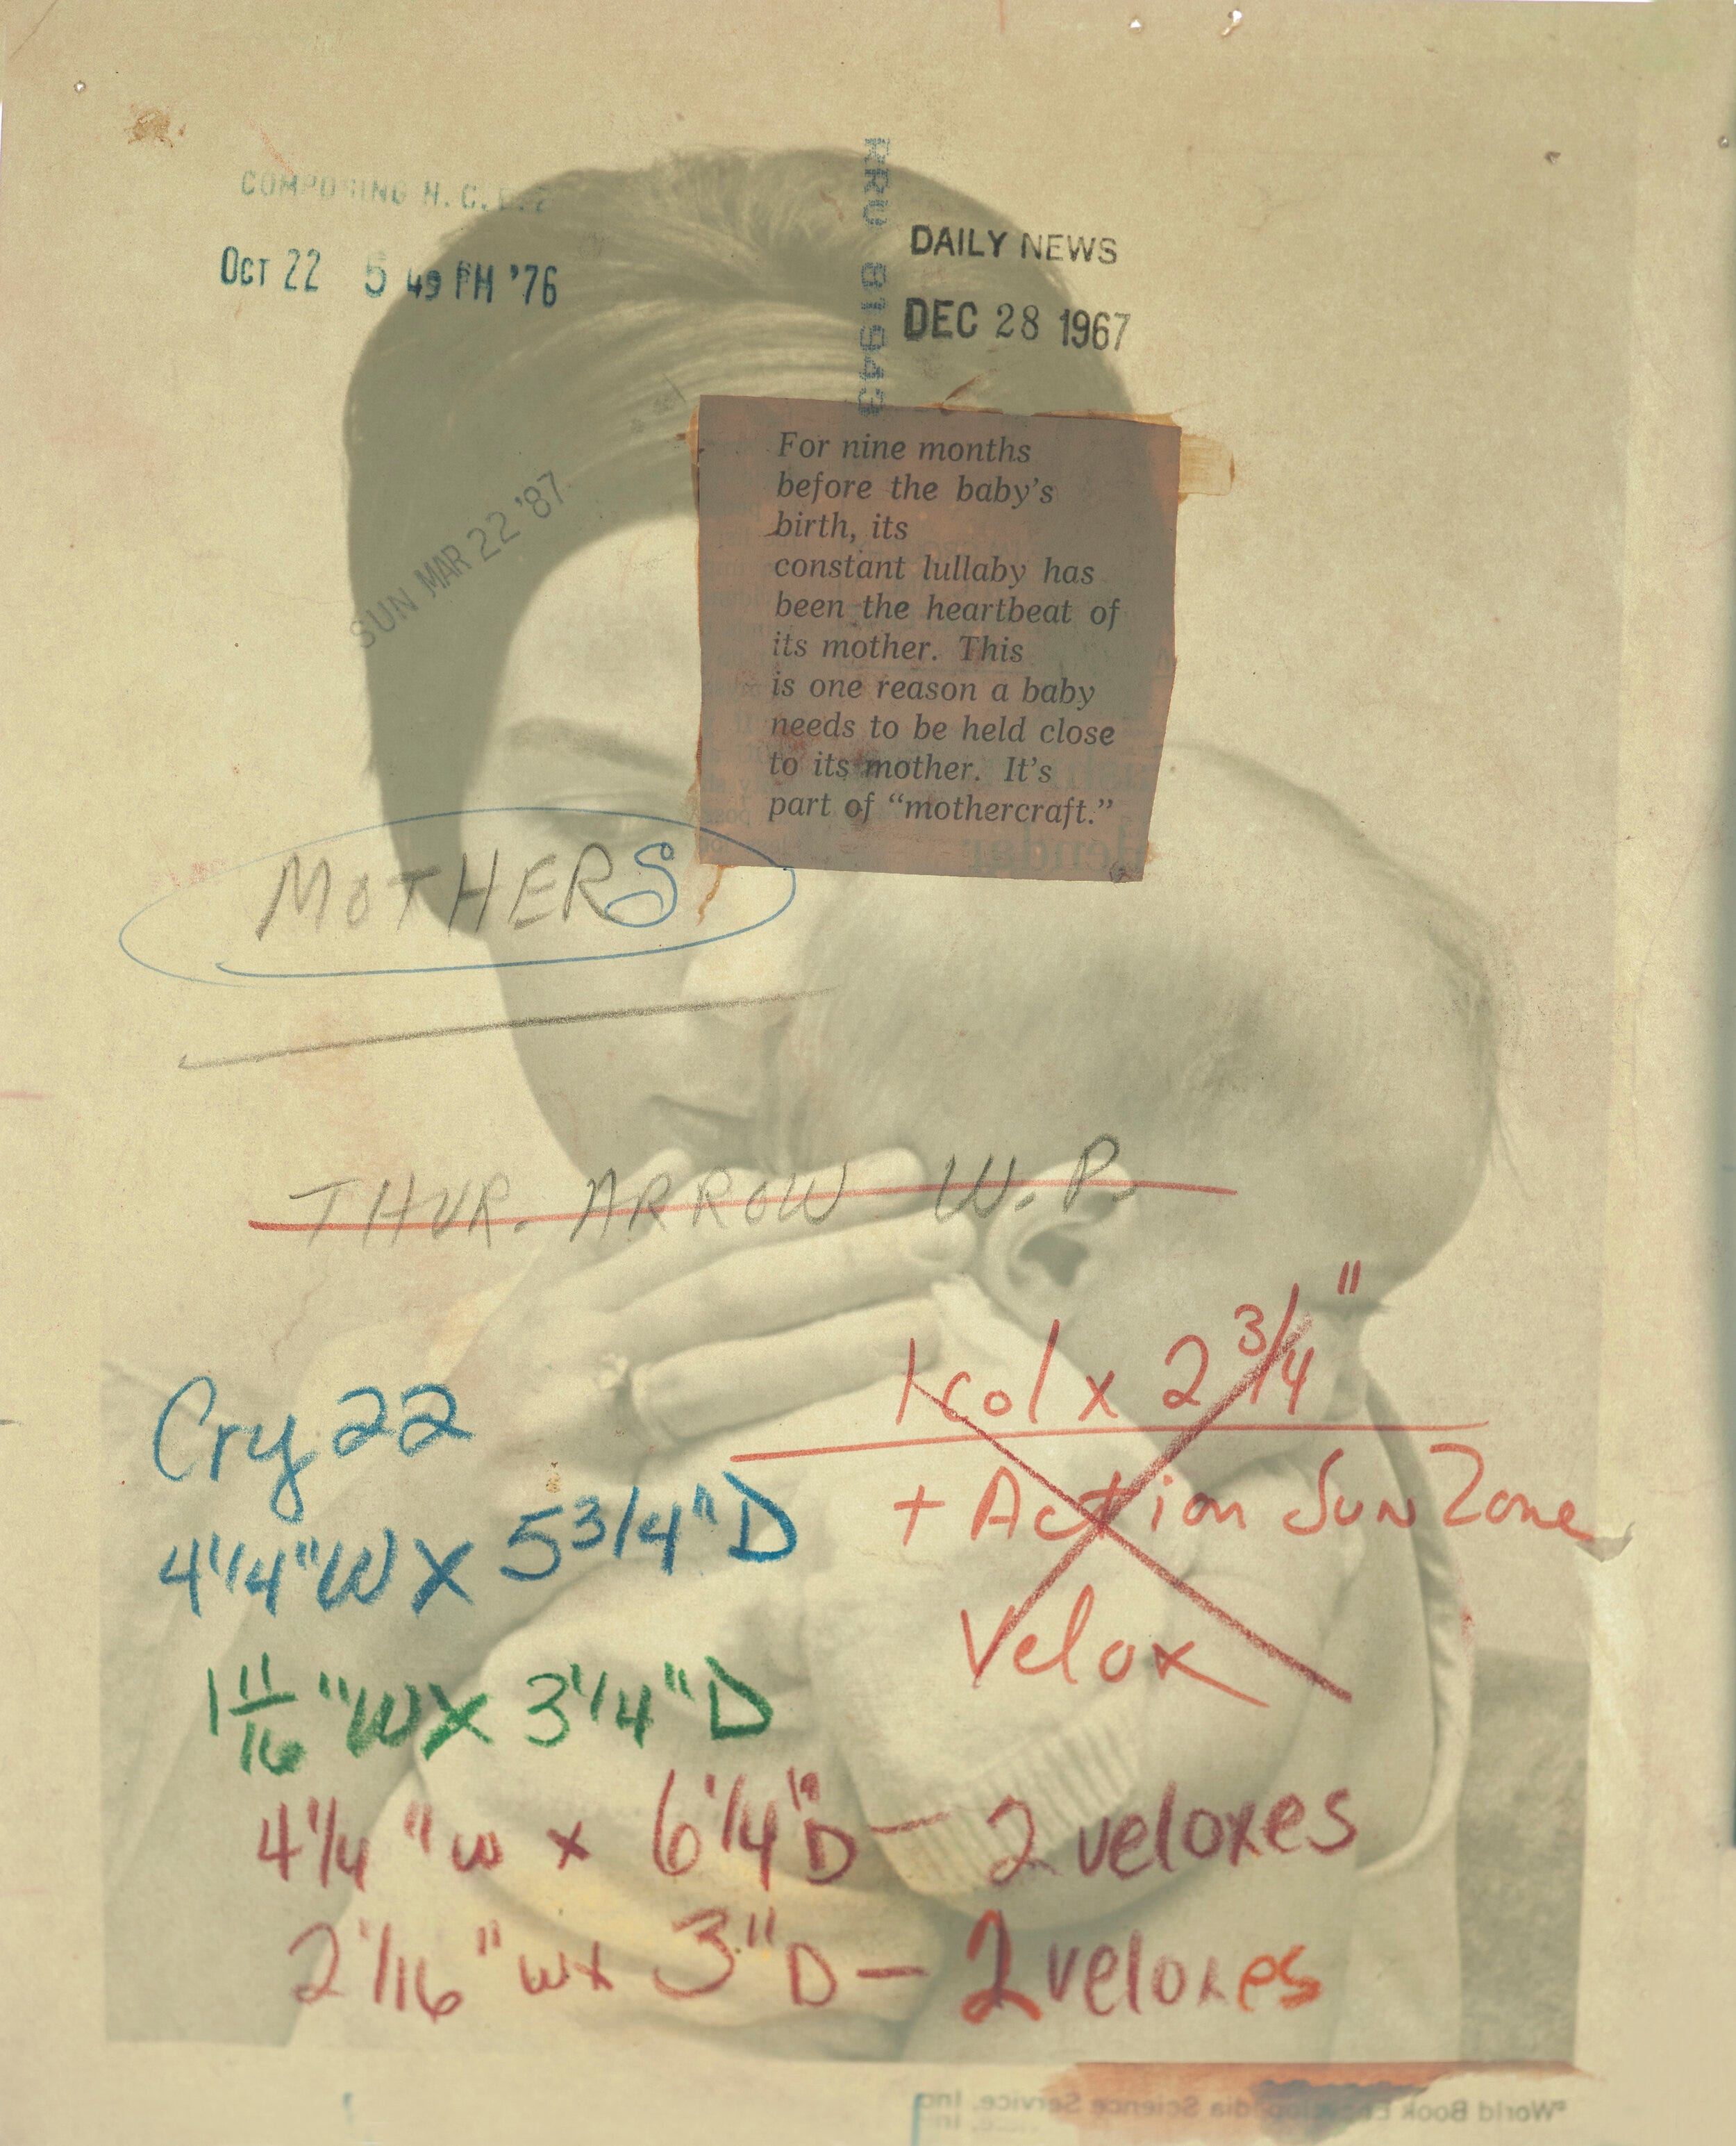 COMPOSING
OCT 22 5 49 PM '76
RRU 81943
DAILY NEWS
DEC 28 1967
SUN MAR 22 '87
For nine months
before the baby's
birth, its
constant lullaby has
been the heartbeat of
its mother. This
is one reason a baby
needs to be held close
to its mother. It's
part of “mothercraft.”
MOTHERS
THUR. ARROW W. P.
1 col x 2 3/4"
+ Action Sun Zone
Velox
Cry 22
4 1/4" W X 5 3/4" D
1 11/16" W X 3 1/4" D
4 1/4" W x 6 1/4" D — 2 veloxes
2 1/16" W x 3" D — 2 veloxes
World Book Encyclopedia Science Service, Inc